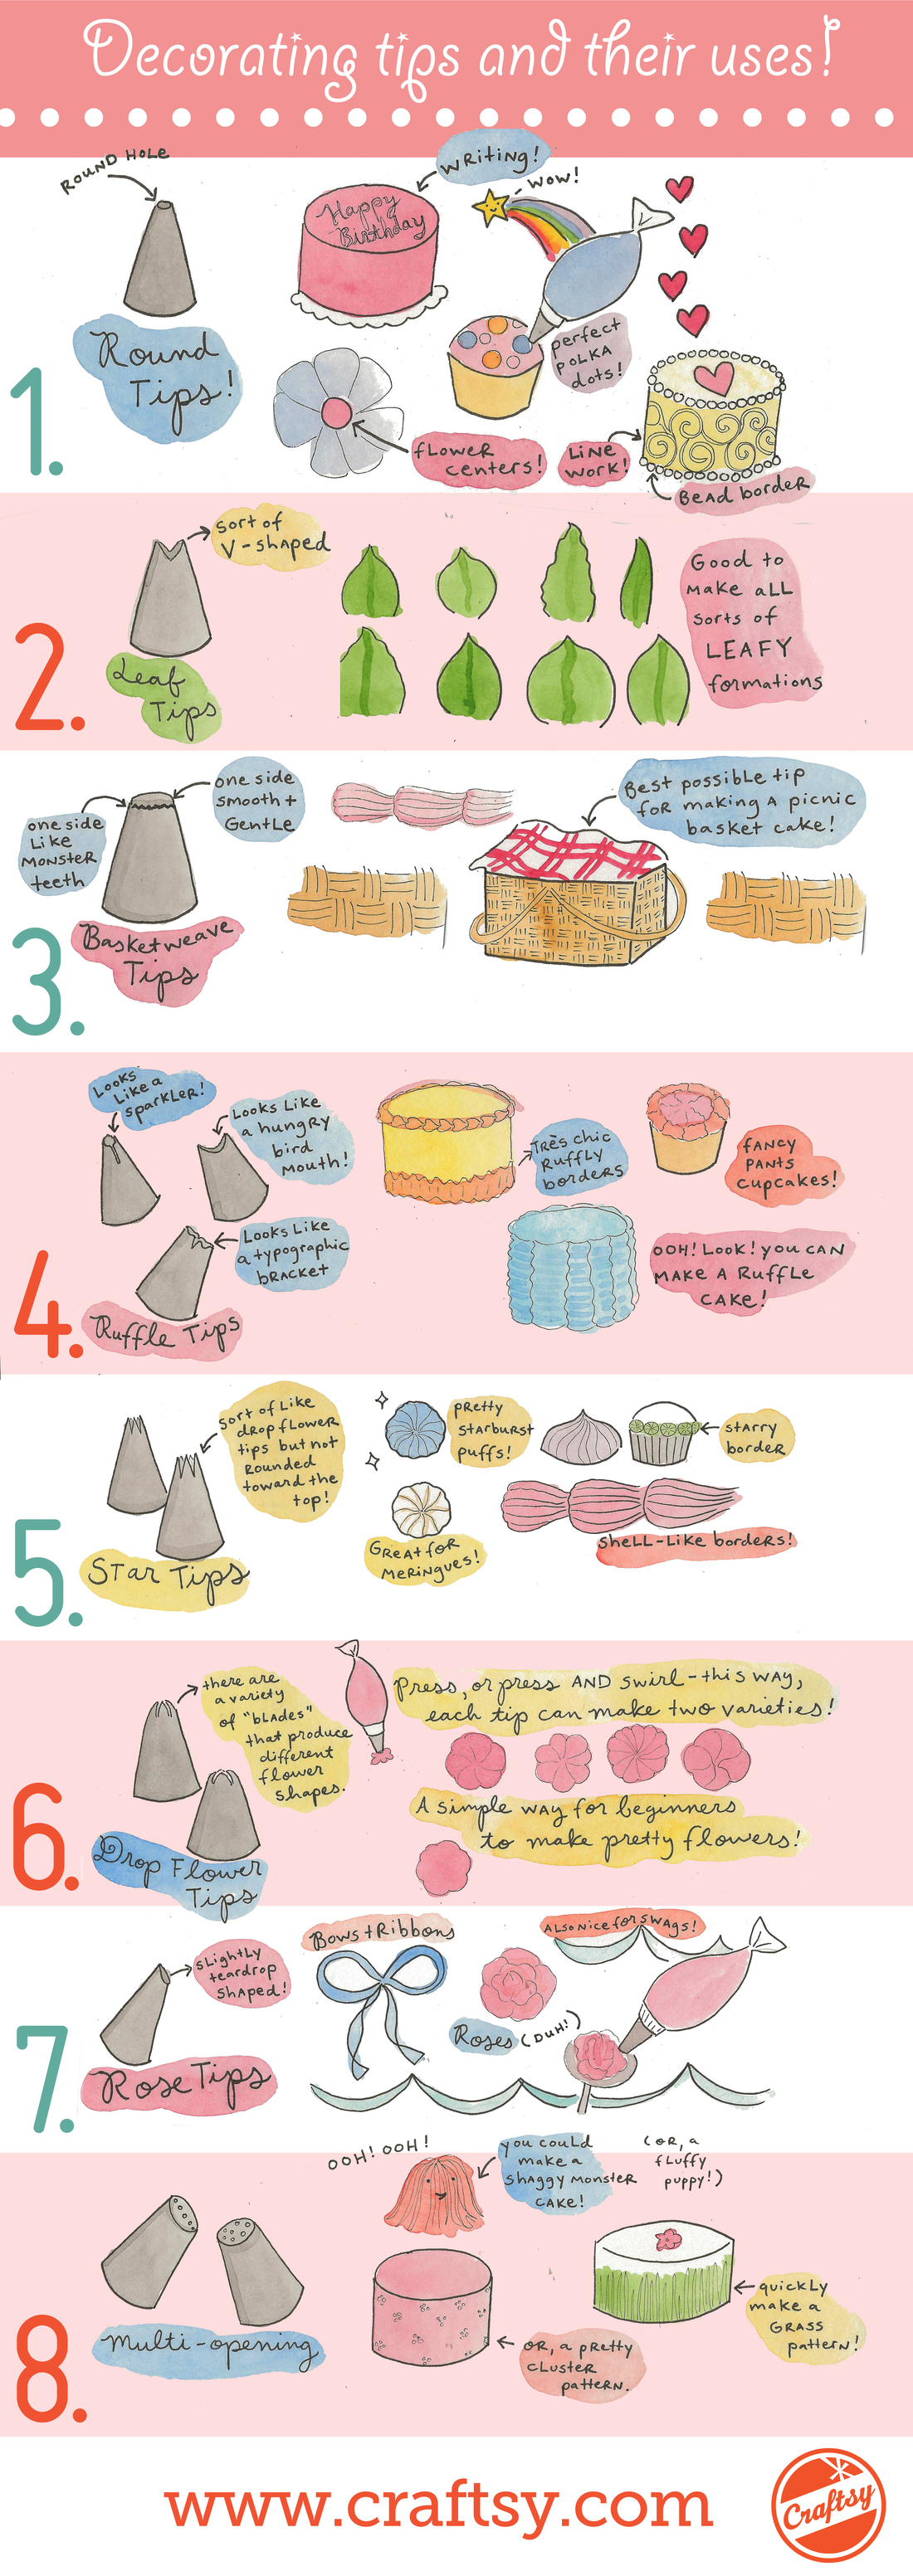 Decorating tips and their uses!
ROUND HOLE
Round
Tips!
1.
Happy
Birthday
WRiting!
WOW!
perfect
POLKA
dots!
fLOWER
centers!
Line
WORK!
BeAD border
2.
sort of
V-shaped
Leaf
Tips
Good to
MAKE ALL
sorts of
LEAFY
formations
3.
one side
Like
MONSTER
teeth
one side
smooth +
GentLe
Basketweave
Tips
Best possible tip
foR making A picnic
basket cake!
4.
LOOKS
Like a
sparkLeR!
LOOKS Like
a hungry
bird
MOUTH!
LOOKS Like
a typographic
bRACKet
Ruffle Tips
TRès chic
Ruffly
borders
fANCY
PANTS
cupcakes!
OOH! LOOK! you CAN
MAKE A RuffLe
CAKE!
5.
sort of Like
drop fLOWER
tips but not
ROUNDED
toward the
top!
Star Tips
pRetty
staRbuRst
puffs!
GReat foR
MeRingues!
staRRy
bordeR
SheLL-Like borders!
6.
there are
a variety
of "bLAdes"
that produce
different
flower
shapes.
Drop Flower
Tips
Press, or press AND swirl-this way,
each tip can make two varieties!
A simple way for beginners
to make pretty flowers!
7.
sLightLy
teardrop
shaped!
Rose Tips
Bows + Ribbons
ALSO Nice foR SWAgs!
Roses (DUH!)
8.
Multi-opening
OOH! OOH!
you couLd
make a
shaggy monsteR
CAKE!
(OR, a
fLuffy
puppy!)
OR, a pRetty
CLusteR
patteRN.
quickLy
make a
GRASS
pattern!
www.craftsy.com
Craftsy